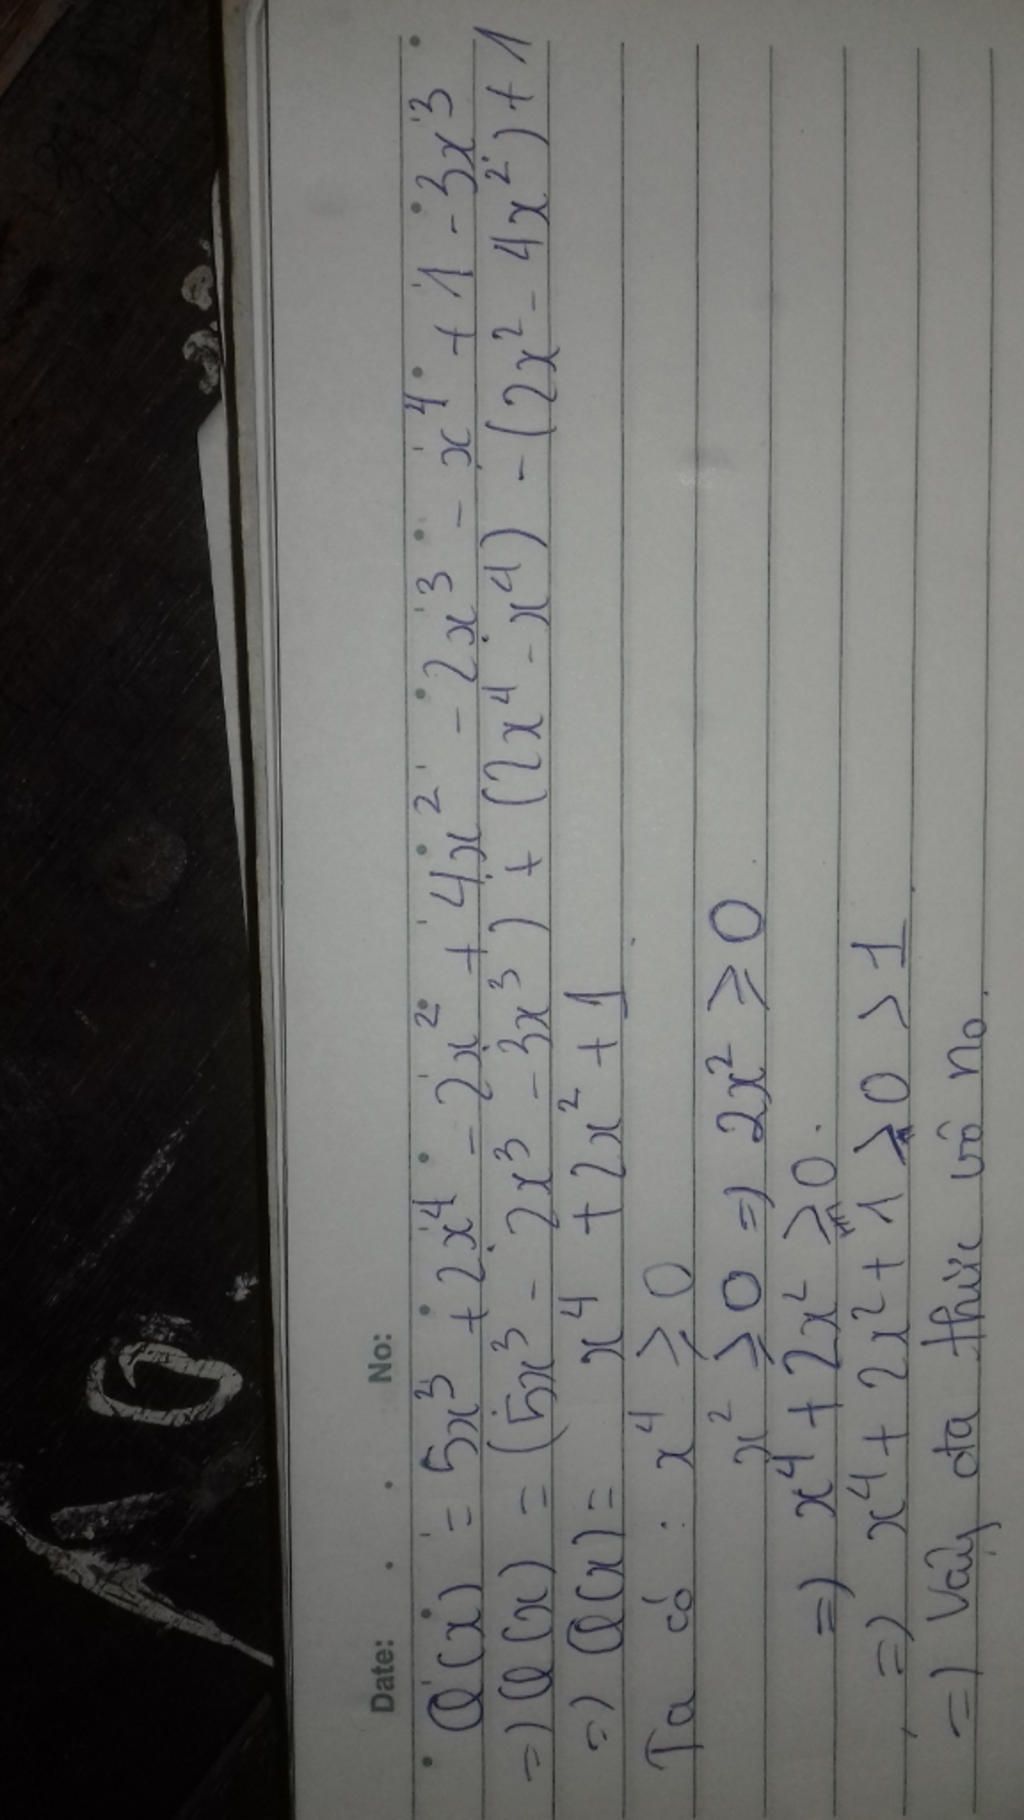 Date: No:
Q(x) = 5x³ + 2x⁴ - 2x² + 4x² - 2x³ - x⁴ + 1 - 3x³
=) Q(x) = (5x³ - 2x³ - 3x³) + (2x⁴ - x⁴) - (2x² - 4x²) + 1
=) Q(x) = x⁴ + 2x² + 1
Ta có : x⁴ ≥ 0
x² ≥ 0 =) 2x² ≥ 0
=) x⁴ + 2x² ≥ 0.
=) x⁴ + 2x² + 1 ≥ 0 > 1
=) Vậy đa thức vô no.